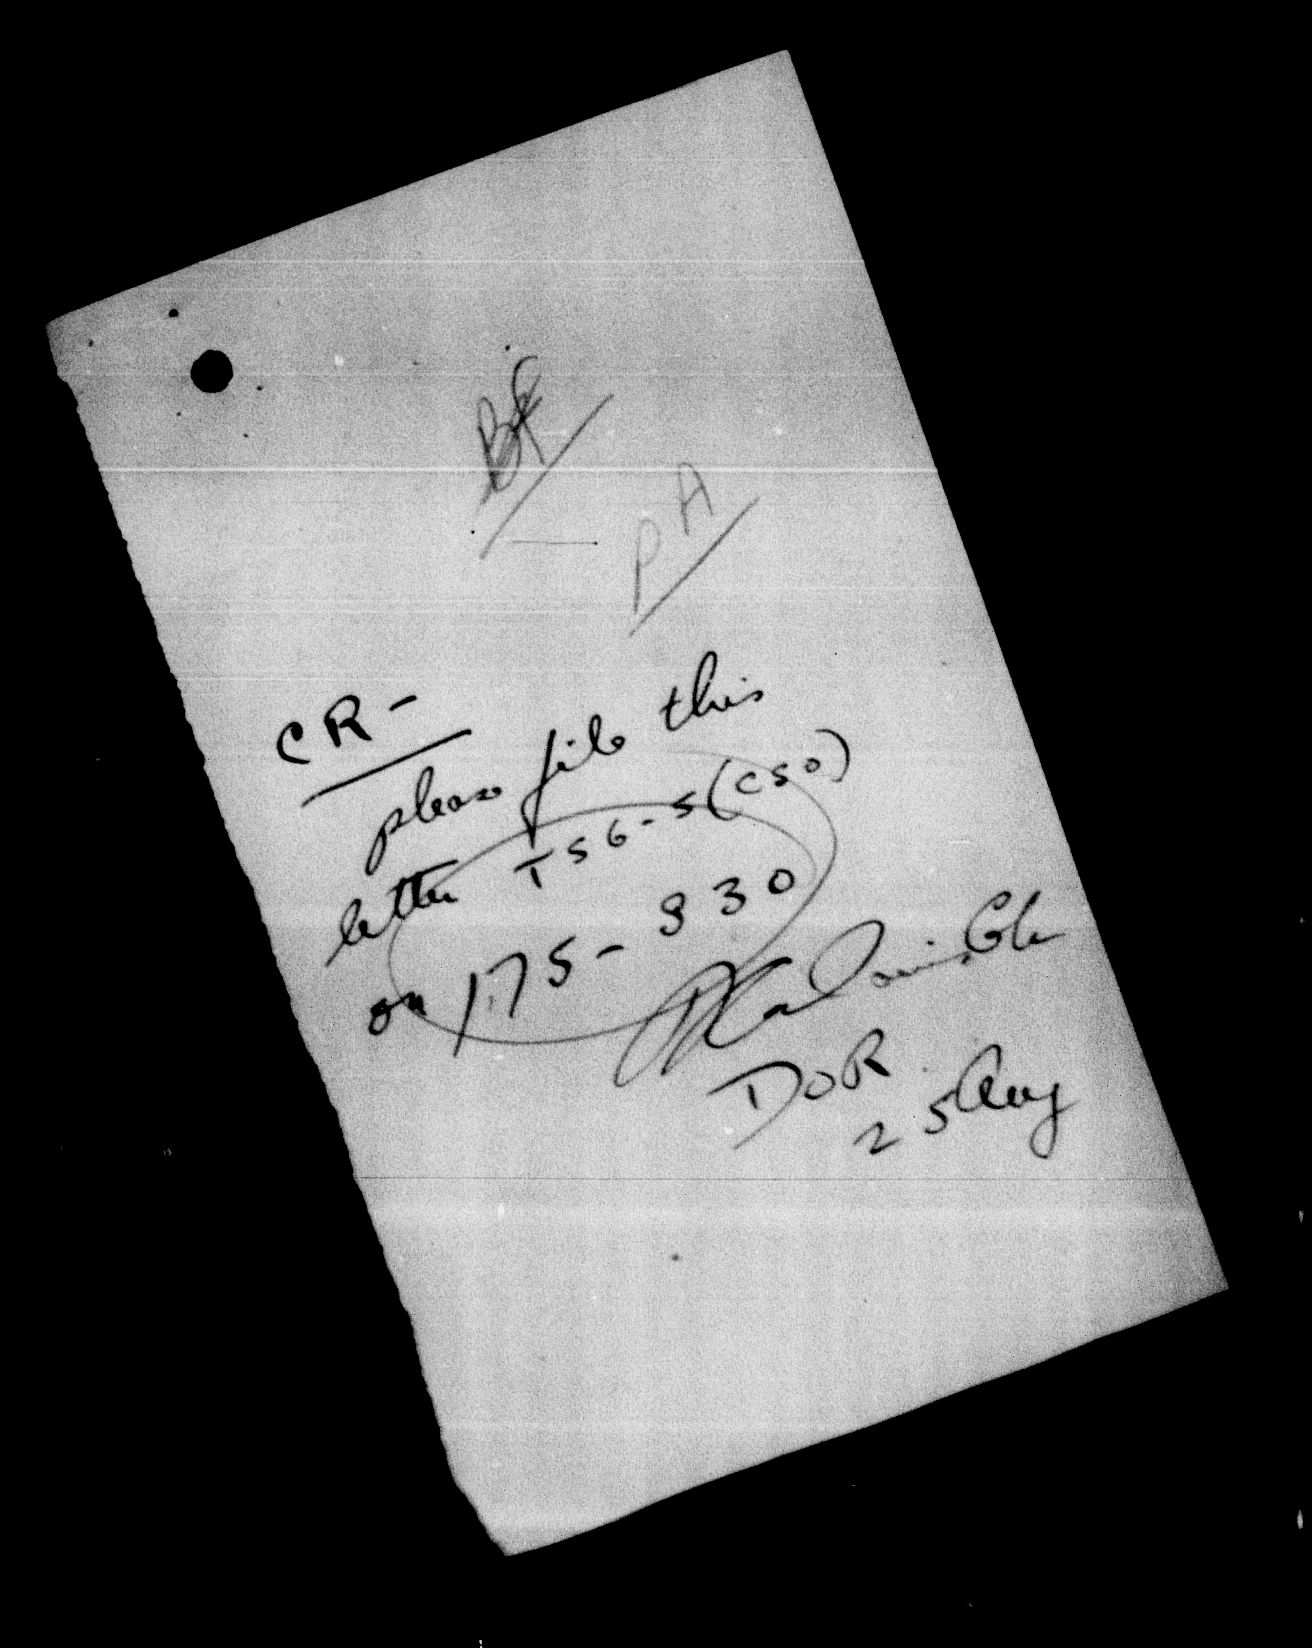 BF
PA
CR -
please file this
letter TS6-5 (CSO)
on 175-330
G/C
DOR
25 Aug